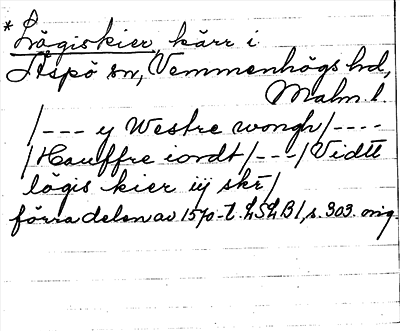 *Lögiskier, kärr i
Äspö sn, Vemmenhögs hd,
Malm. l.
/--- ij Westre wongh/----
/Hauffre iordt/---/Vidtt
lögis kier iij skr/
förra delen av 1570-t. LSLB 1, s. 303. orig.